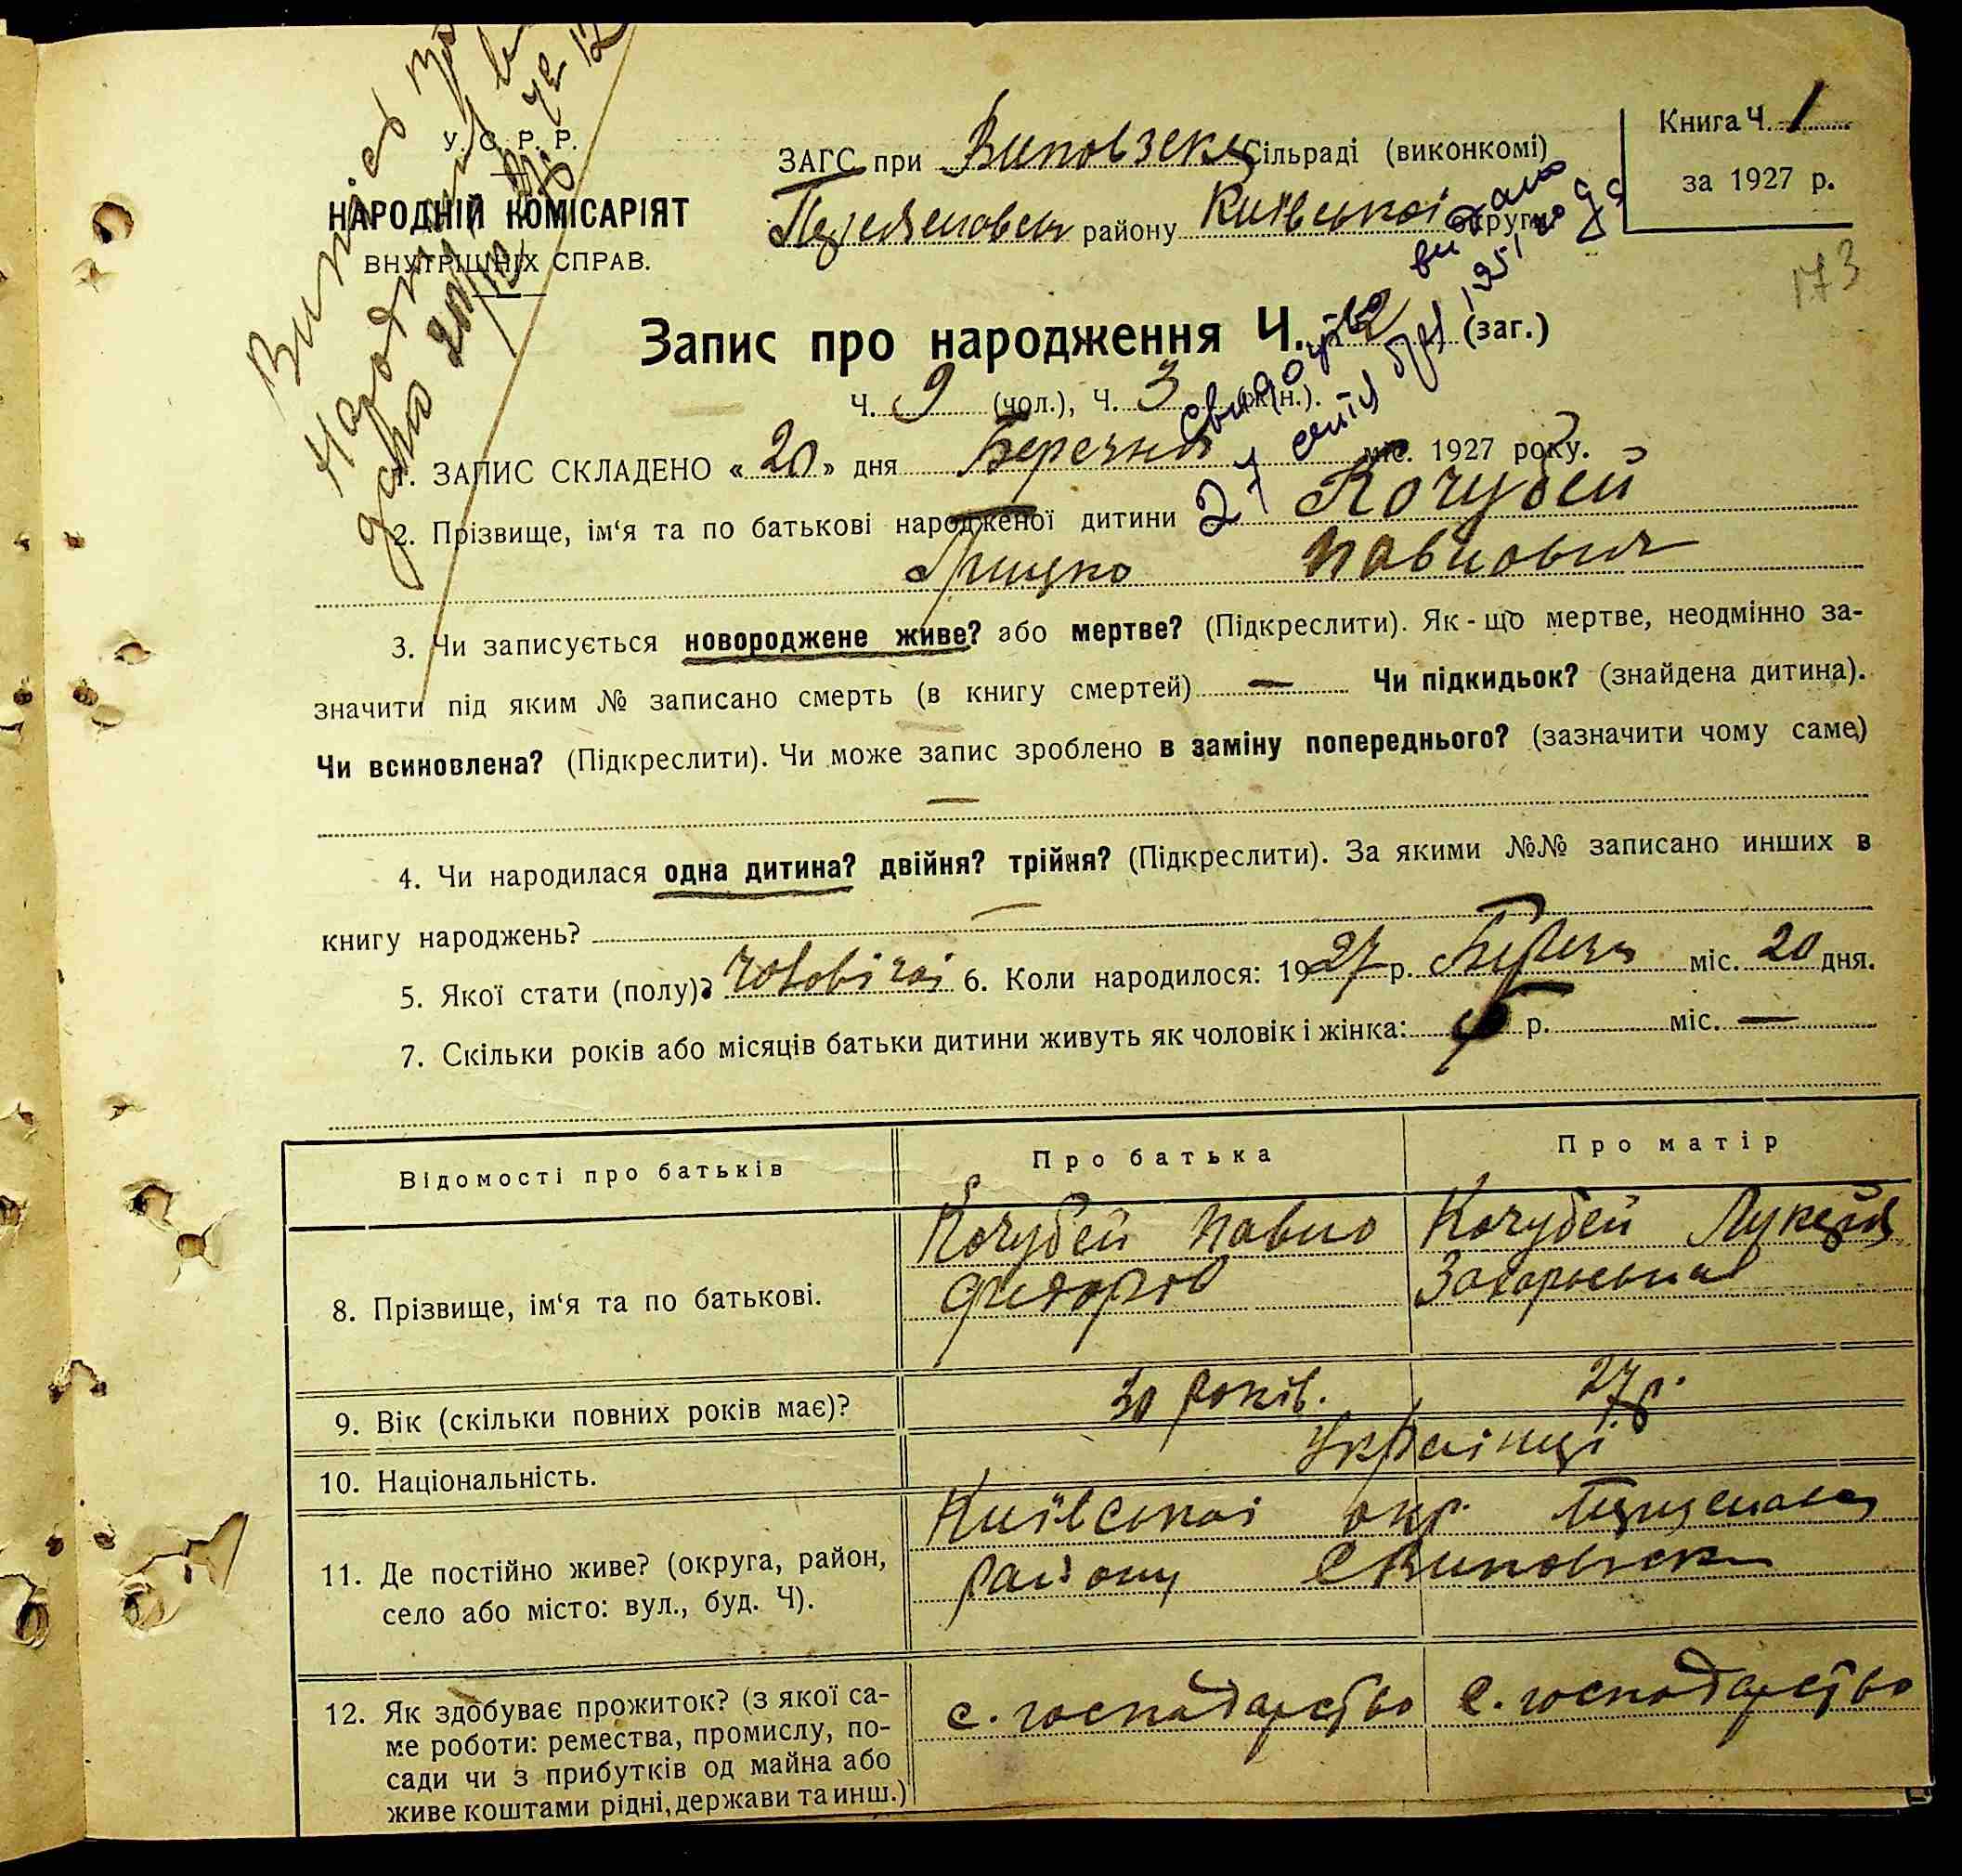 Витяг про
народження
дано 20/IV
У. С. Р. Р.
НАРОДНІЙ КОМІСАРІЯТ
ВНУТРІШНІХ СПРАВ.
ЗАГС при Виповзскій Сільраді (виконкомі)
Переяславськ району Київськоі округи
Книга Ч. 1
за 1927 р.
173
Запис про народження Ч. 12 (заг.)
Ч. 9 (чол.), Ч. 3 (жін.).
Свидоцтво видано
27
1951
1. ЗАПИС СКЛАДЕНО « 20 » дня Березня міс. 1927 року.
2. Прізвище, ім'я та по батькові народженої дитини Кочубей
Грицко Павлович
3. Чи записується новороджене живе? або мертве? (Підкреслити). Як-що мертве, неодмінно за-
значити під яким № записано смерть (в книгу смертей) — Чи підкидьок? (знайдена дитина).
Чи всиновлена? (Підкреслити). Чи може запис зроблено в заміну попереднього? (зазначити чому саме)
—
4. Чи народилася одна дитина? двійня? трійня? (Підкреслити). За якими №№ записано инших в
книгу народжень? —
5. Якої стати (полу)? чоловічоі 6. Коли народилося: 1927 р. Березня міс. 20 дня.
7. Скільки років або місяців батьки дитини живуть як чоловік і жінка: р. міс. —
Відомості про батьків Про батька Про матір
8. Прізвище, ім'я та по батькові. Кочубей Павло Кочубей Лукерія
Захарьевна
9. Вік (скільки повних років має)? 30 років. 27 р.
10. Національність. Украінці
11. Де постійно живе? (округа, район,
село або місто: вул., буд. Ч). Київськоі окр. Переяславск
району с Виповзск
12. Як здобуває прожиток? (з якої са-
ме роботи: ремества, промислу, по-
сади чи з прибутків од майна або
живе коштами рідні, держави та инш.) с. господарство с. господарство